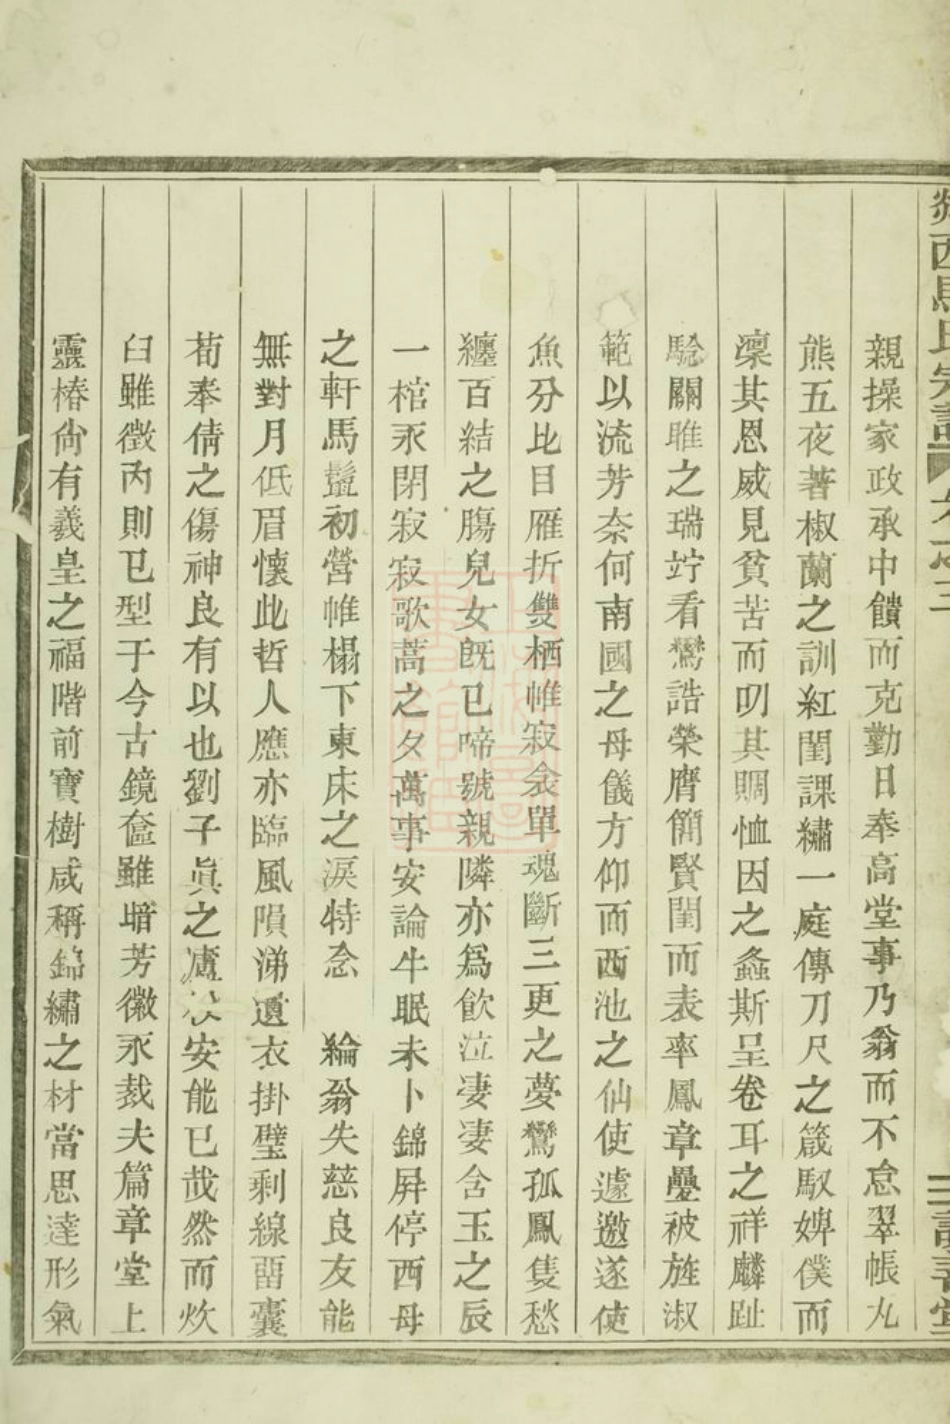 西馬氏宗譜 卷之三 三
親操家政承中饋而克勤日奉高堂事乃翁而不怠翠帳丸
熊五夜著椒蘭之訓紅閨課繡一庭傳刀尺之箴馭婢僕而
凜其恩威見貧苦而叨其賙恤因之螽斯呈卷耳之祥麟趾
騐關雎之瑞竚看鸞誥榮膺簡賢閨而表率鳳章疊被旌淑
範以流芳奈何南國之母儀方仰而西池之仙使遽邀遂使
魚分比目雁折雙栖帷寂衾單魂斷三更之夢鸞孤鳳隻愁
纏百結之腸兒女旣已啼號親隣亦爲飮泣凄凄含玉之辰
一棺永閉寂寂歌蒿之夕萬事安論牛眠未卜錦屛停西母
之軒馬鬣初營帷榻下東床之淚特念 綸翁失慈良友能
無對月低眉懷此哲人應亦臨風隕涕遺衣掛壁剩線畱囊
荀奉倩之傷神良有以也劉子眞之廬 安能已哉然而炊
臼雖徵丙則已型于今古鏡奩雖暗芳徽永裁夫篇章堂上
靈椿尙有羲皇之福階前寶樹咸稱錦繡之材當思達形氣